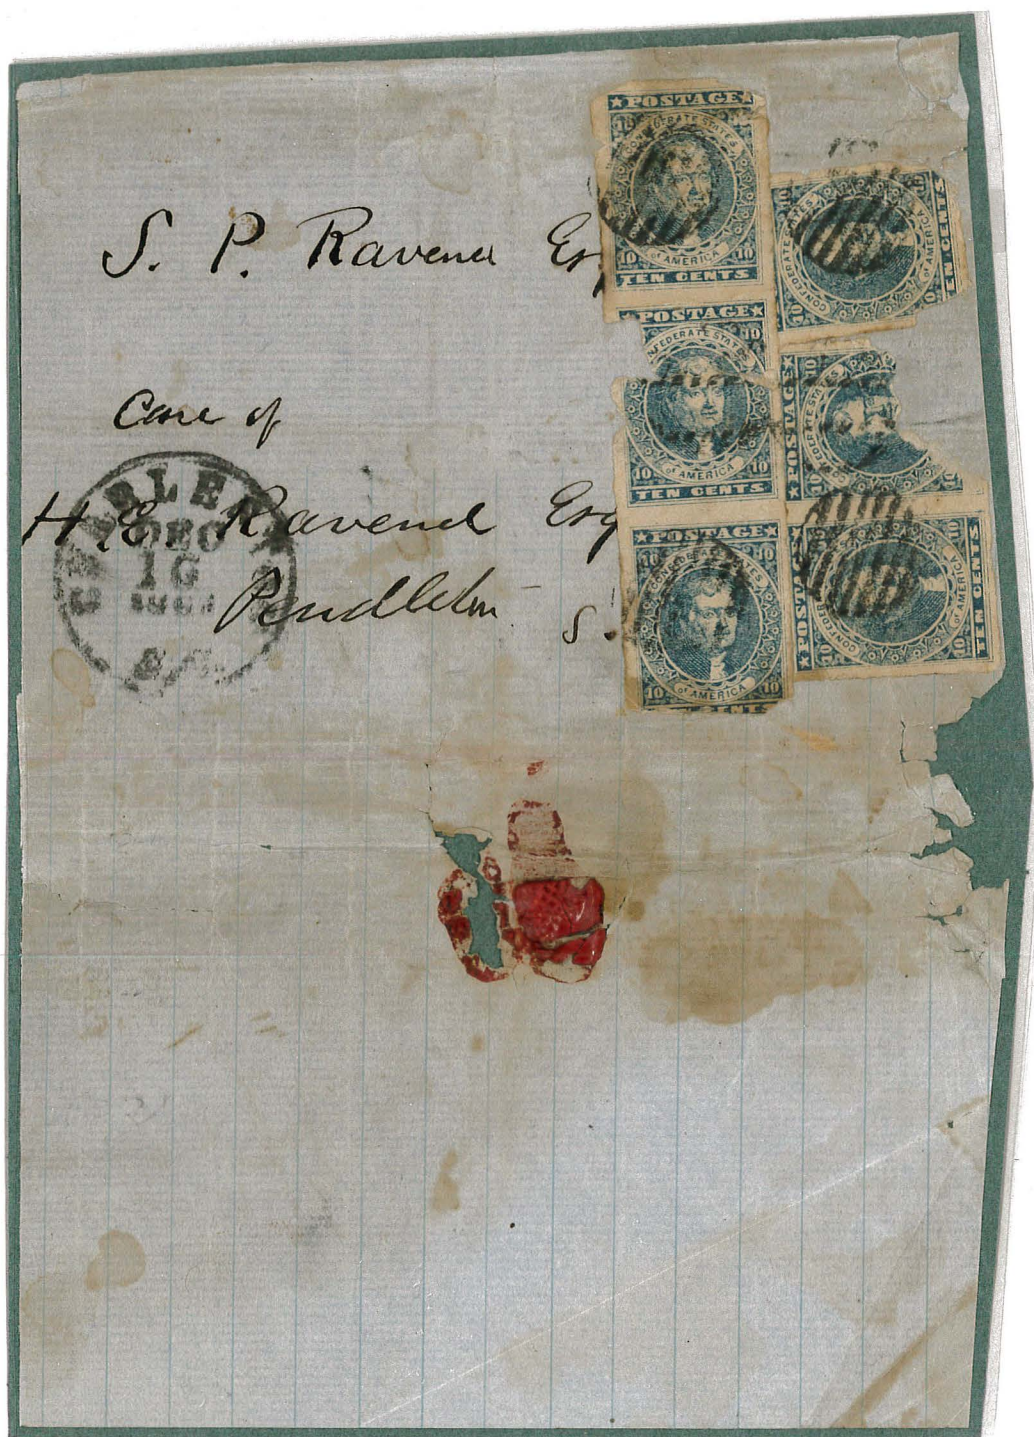 S. P. Ravenel Esq
Care of
H. E. Ravenel Esq
Pendleton S.
CHARLESTON
DEC
16
S.C.
★POSTAGE★
10 10
CONFEDERATE STATES
of AMERICA
10 10
TEN CENTS
CONFEDERATE STATES
of AMERICA
10
EN CENTS
POSTAGE★
10
FEDERATE STATES
of AMERICA
10 10
TEN CENTS
★POSTAGE★
10
CONFEDERATE STATES
★POSTAGE★
10 10
CONFEDERATE STATES
of AMERICA
10 10
CENTS
★POSTAGE
10 10
CONFEDERATE
of AMERICA
10 10
TEN CENTS